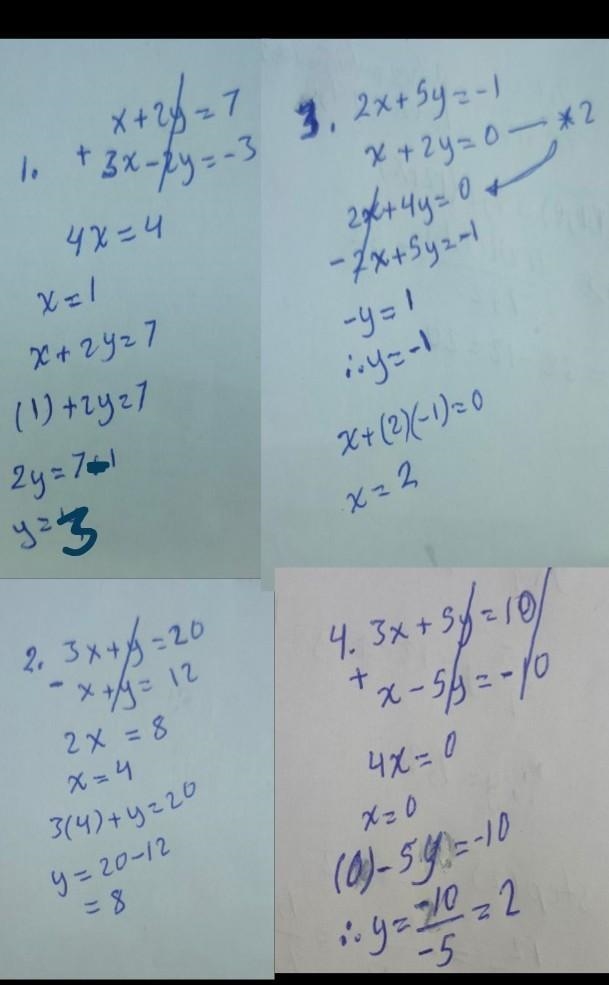 1. x+2y=7
+ 3x-2y=-3
4x=4
x=1
x+2y=7
(1)+2y=7
2y=7-1
y=3
2. 3x+y=20
- x+y=12
2x=8
x=4
3(4)+y=20
y=20-12
=8
3. 2x+5y=-1
x+2y=0 *2
2x+4y=0
-2x+5y=-1
-y=1
∴y=-1
x+(2)(-1)=0
x=2
4. 3x+5y=10
+ x-5y=-10
4x=0
x=0
(0)-5y=-10
∴y=-10/-5=2